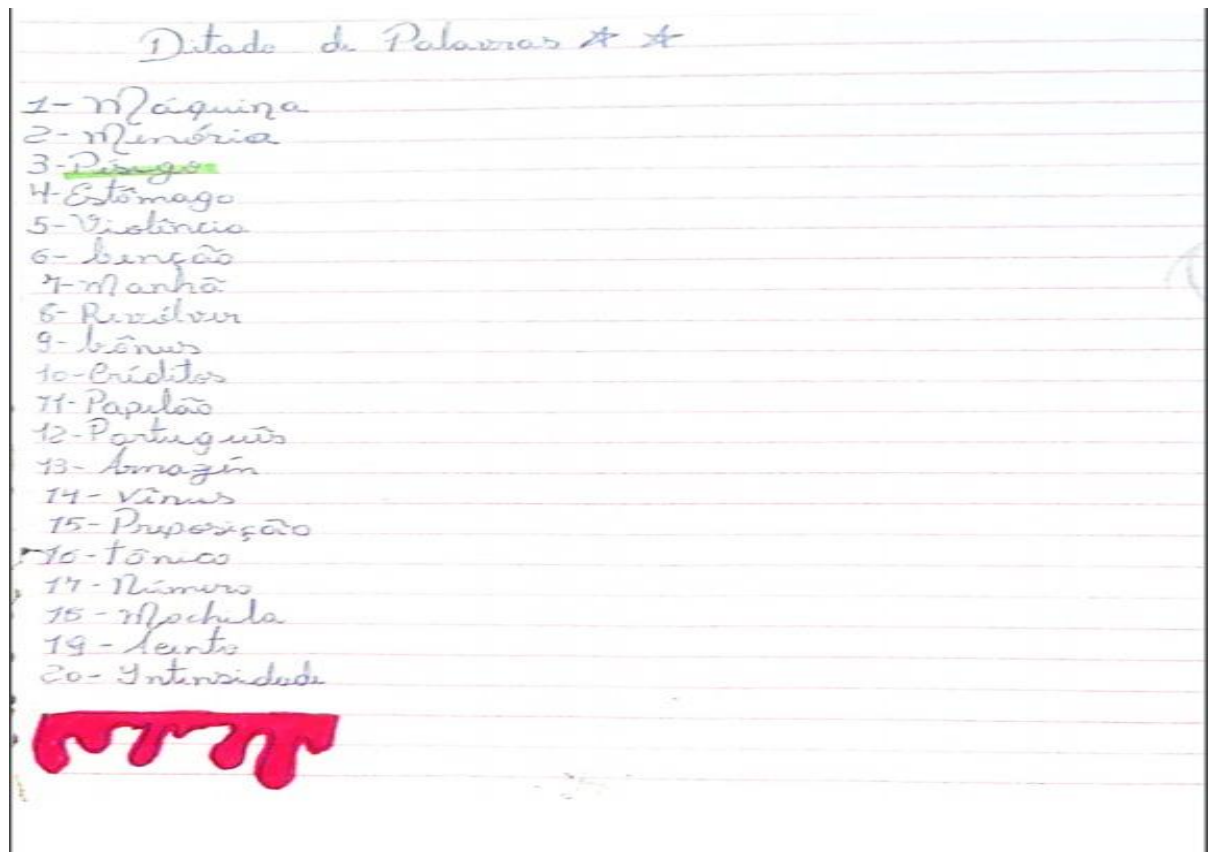 Ditado de Palavras
1- Máquina
2- Memória
3- Pêsego
4- Estômago
5- Violência
6- benção
7- Manhã
8- Revólver
9- bônus
10- Créditos
11- Papelão
12- Português
13- Armazén
14- Vênus
15- Preposição
16- tônico
17- Número
18- Mochila
19-
20- Intensidade